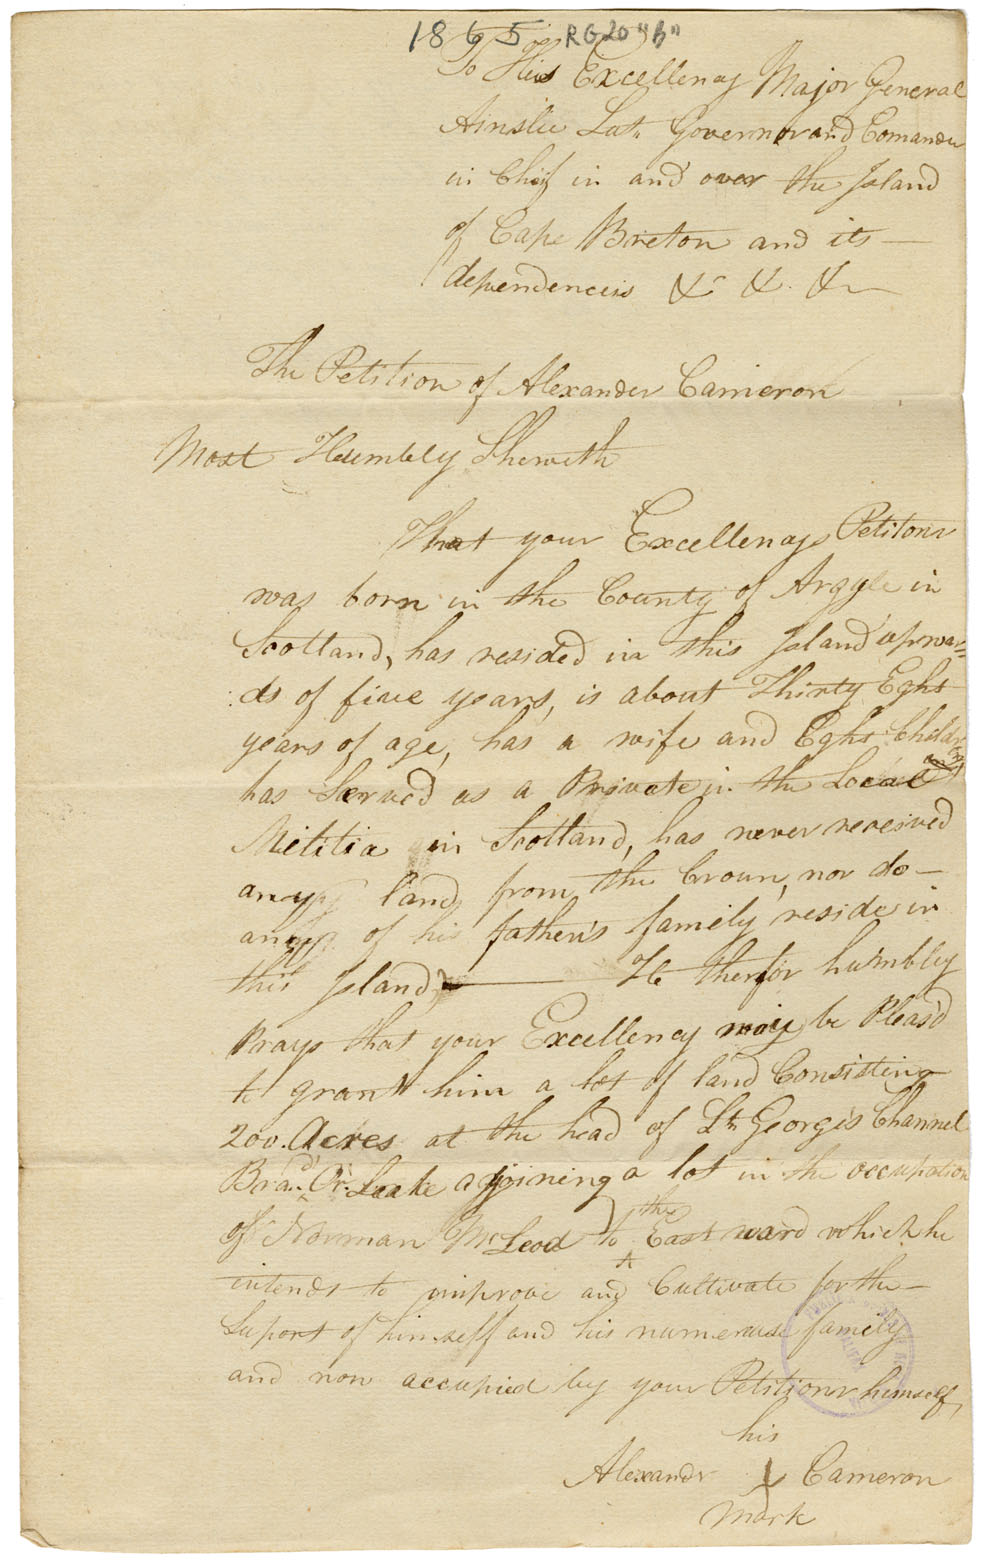 1865 RG20 "B"
To His Excellency Major General
Ainslie Lat. Governor and Comander
in Chif in and over the Island
of Cape Breton and its —
dependenceis &c &c. &c —
The Petition of Alexander Cameron
Most Humbly Sheweth
That your Excellencys Petitonr
was born in the County of Argyle in
Scotland, has resided in this Island upwar=
:ds of five years, is about Thirty Eght
years of age, has a wife and Eght Children
has Served as a Private in the Local and
Militia in Scotland, has never received
any land from the Croun, nor do —
any of his father's family reside in
this Island, — He therfor humbly
Prays that your Excellency may be Pleas'd
to grant him a lot of land Consisting
200. Acres at the head of St. George's Channel
Bra.d Or. Laake ajoining a lot in the occupation
of Norman McLeod to the East ward which he
intends to improve and Cultivate for the —
Suport of himself and his numerous family
and now accupied by your Petitionr himself,
his
Alexandr X Cameron
mark